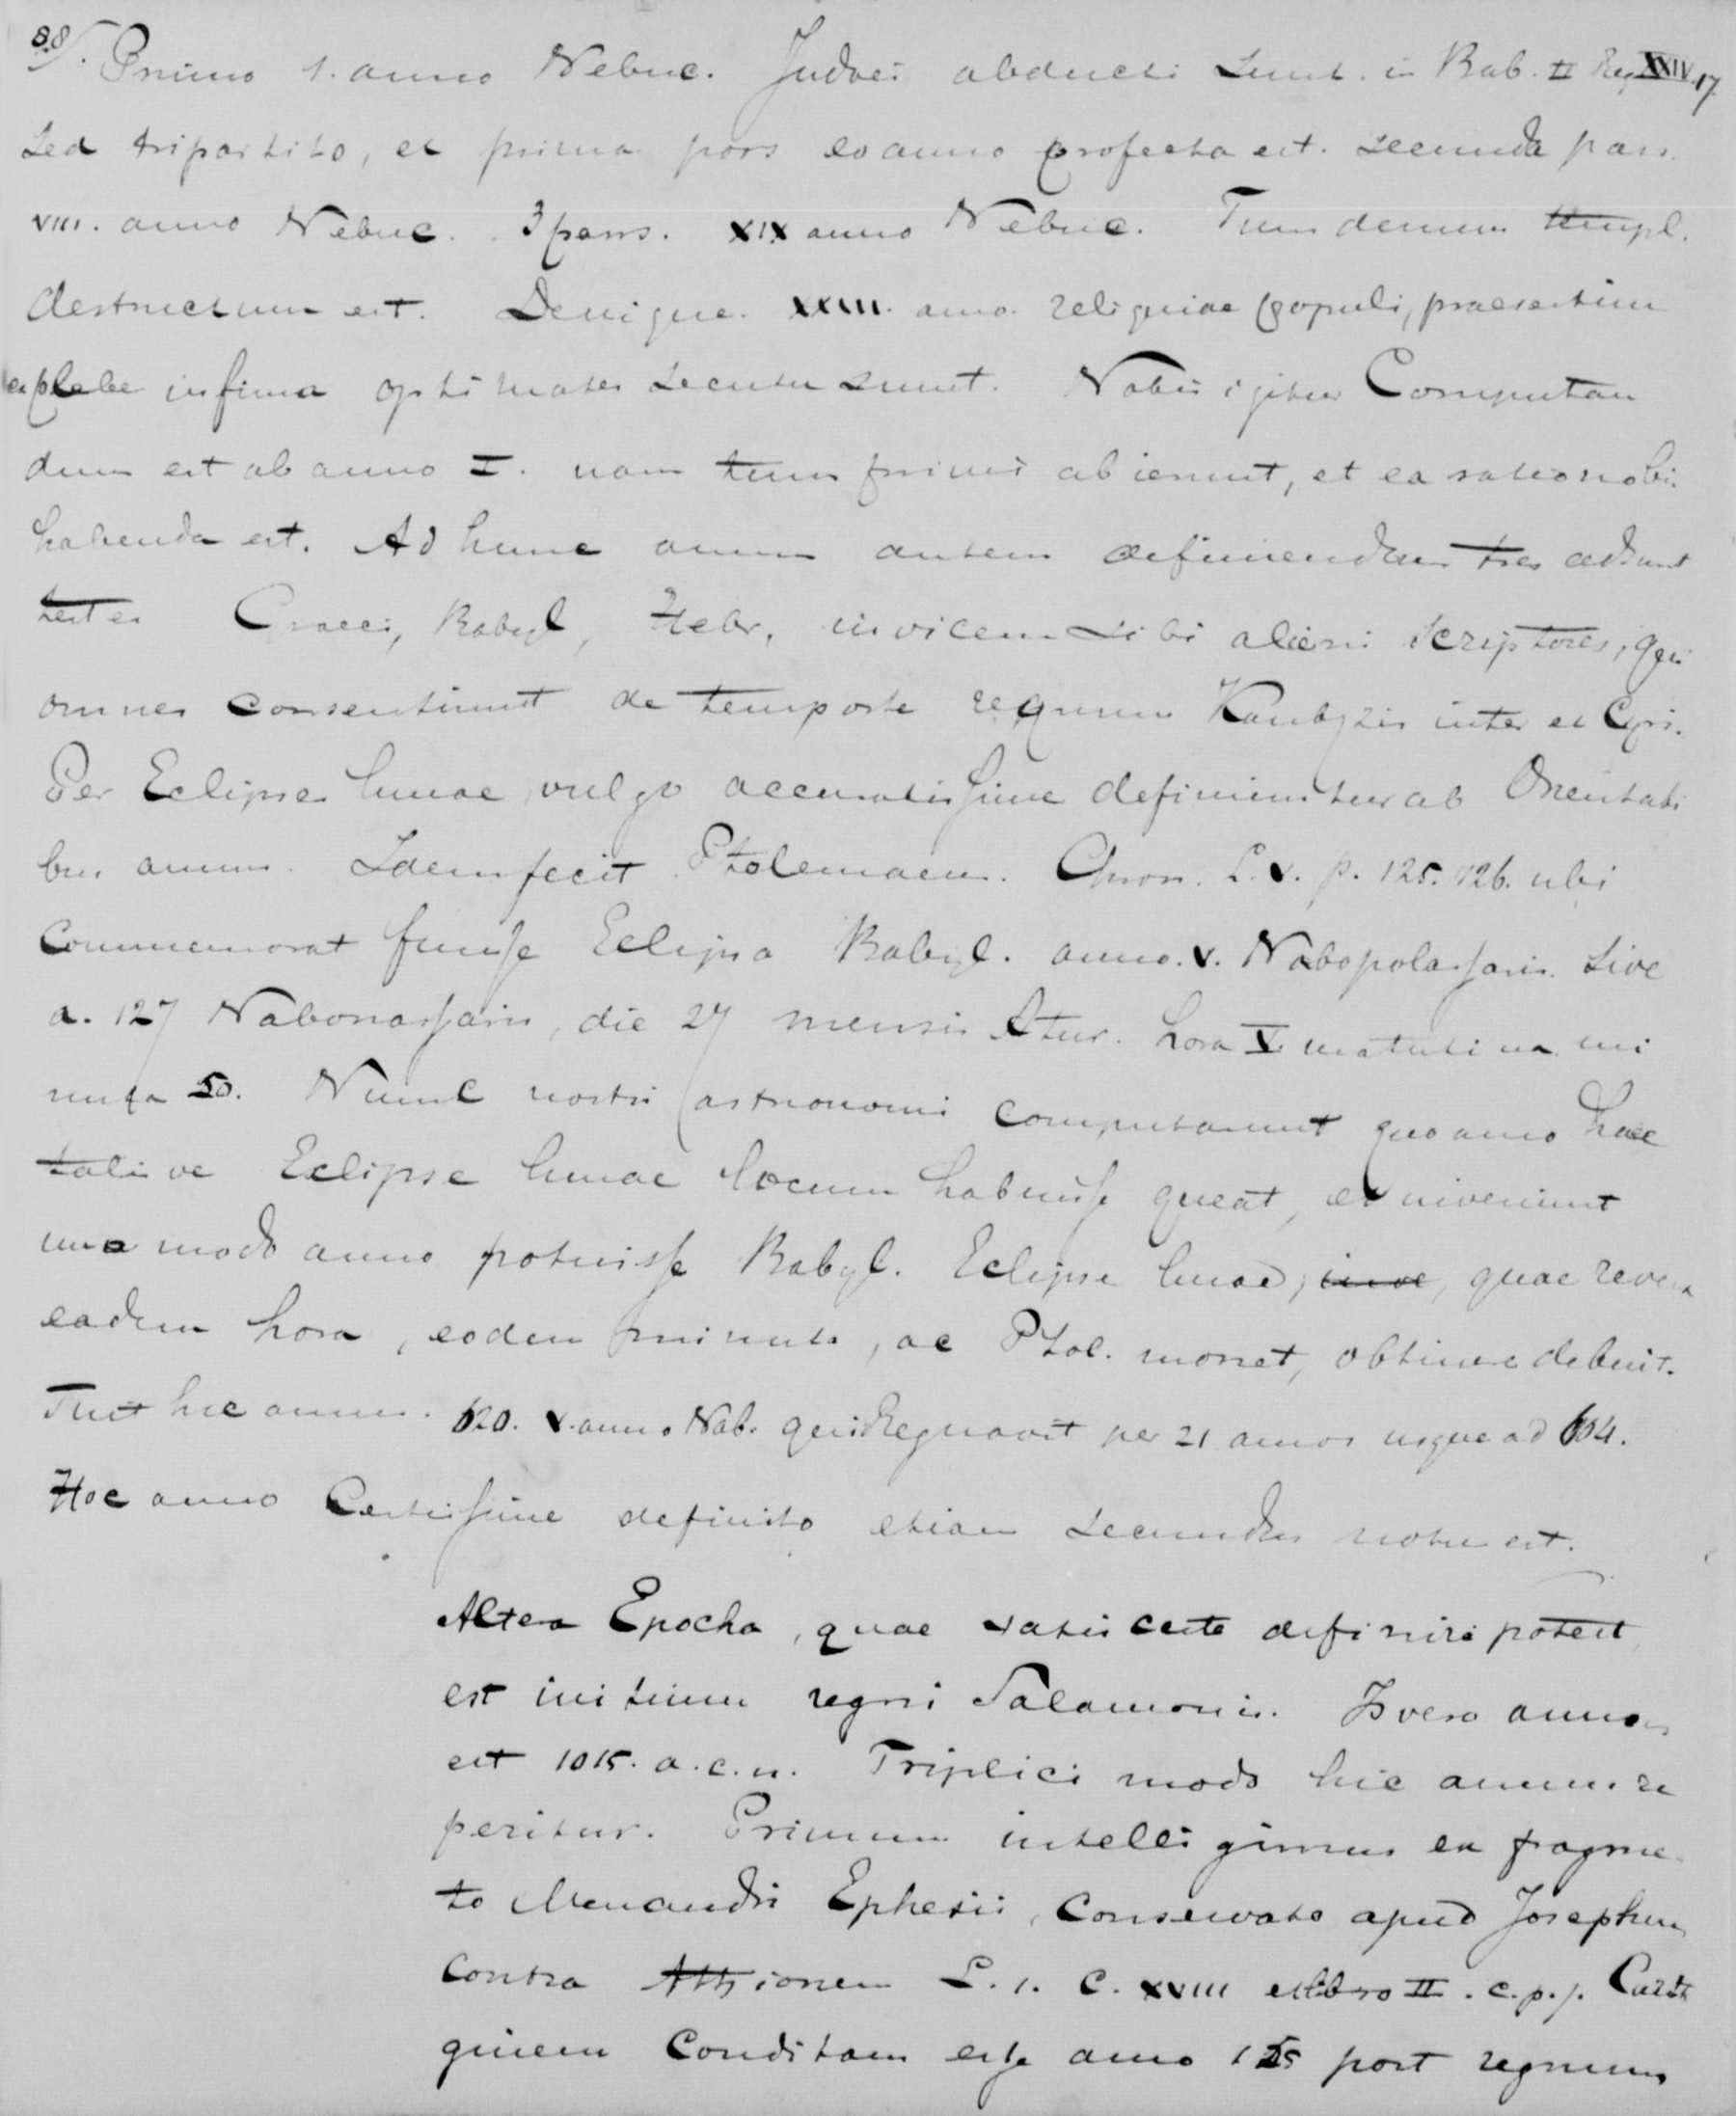 8.8. Primo 1. anno Nebuc. Judaei abducti sunt. in Bab. II Reg XXIV. 17.
sed tripartito, et prima pars eo anno profecta est. secunda pars.
VIII. anno Nebuc. 3 pars. XIX anno Nebuc. Tum demum templ.
destructum est. Denique. XXIII. anno. reliquiae populi, praesertim
ex plebe infima optimates secutae sunt. Nobis igitur Computan
dum est ab anno I. nam tum primi abierunt, et ea ratio nobis
habenda est. Ad hunc annum autem definiendum tres adsunt
testes Graeci, Babyl, Hebr, invicem sibi alieni scriptores, qui
omnes consentiunt de tempore regnum Kambyzis inter et Cyri.
Per Eclipses lunae vulgo accuratissime definiuntur ab Orientali
bus annum. Idem fecit Ptolemaeus. Chron. L. V. p. 125. 126. ubi
Commemorat fuisse Eclipsa Babyl. anno. V. Nabopolassaris. sive
a. 127 Nabonassaris, die 27 mensis Atur. hora V matutina mi
nuta 50. Nunc nostri astronomi computarunt quo anno haec
talis ve Eclipse lunae locum habuisse queat, et inveniunt
uno modo anno potuisse Babyl. Eclipse lunae, quae revera
eadem hora, eodem minuto, ac Ptol. monet, obtinere debuit.
Fuit hic annus. 620. V. anno Nab. qui Regnavit per 21 annos usque ad 604.
Hoc anno Certissime definito etiam secundus notus est.
Altera Epocha, quae satis certe definiri potest,
est initium regni Salamonis. Is vero annus
est 1015. a. c. n. Triplici modo hic annus re
peritur. Primum intelligimus ex fragme
to Menandri Ephesii, Conservato apud Josephum
contra Appionem L. 1. C. XVIII et libro II. c. p. 1. Carth
ginem Conditam esse anno 155 post regnum